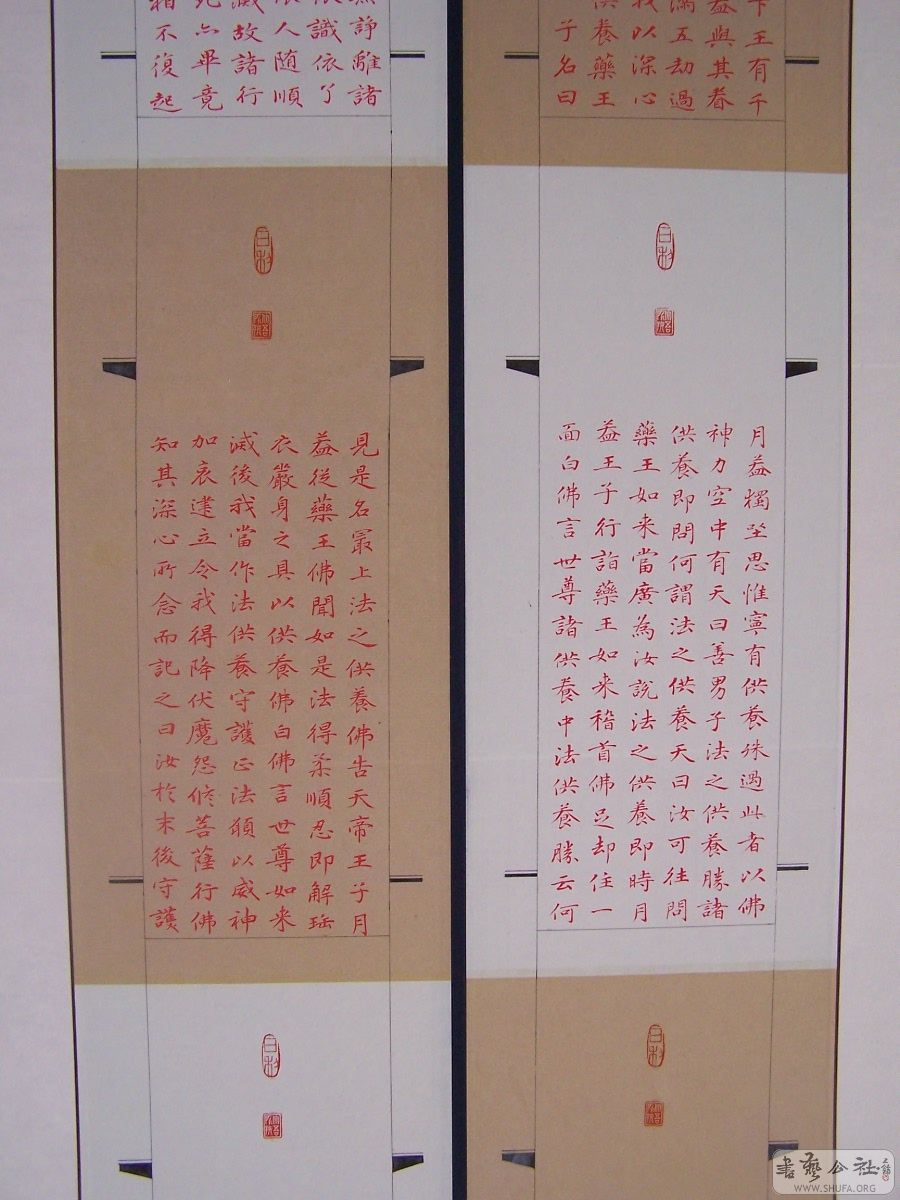 下王有千
蓋與其眷
滿五劫過
我以深心
供養藥王
子名曰
月蓋獨坐思惟寧有供養殊過此者以佛
神力空中有天曰善男子法之供養勝諸
供養即問何謂法之供養天曰汝可往問
藥王如来當廣為汝說法之供養即時月
蓋王子行詣藥王如来稽首佛足却住一
面白佛言世尊諸供養中法供養勝云何
諍離諸
識依了
人随順
滅故諸行
死亦畢竟
相不復起
見是名最上法之供養佛告天帝王子月
蓋從藥王佛聞如是法得柔順忍即解珤
衣嚴身之具以供養佛白佛言世尊如来
滅後我當作法供養守護正法願以威神
加哀建立令我得降伏魔怨修菩薩行佛
知其深心所念而記之曰汝於末後守護
書藝公社
WWW.SHUFA.ORG